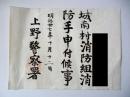 城南村消防組消
防手申付候事
明治廿七年十月十一日
上野警察署